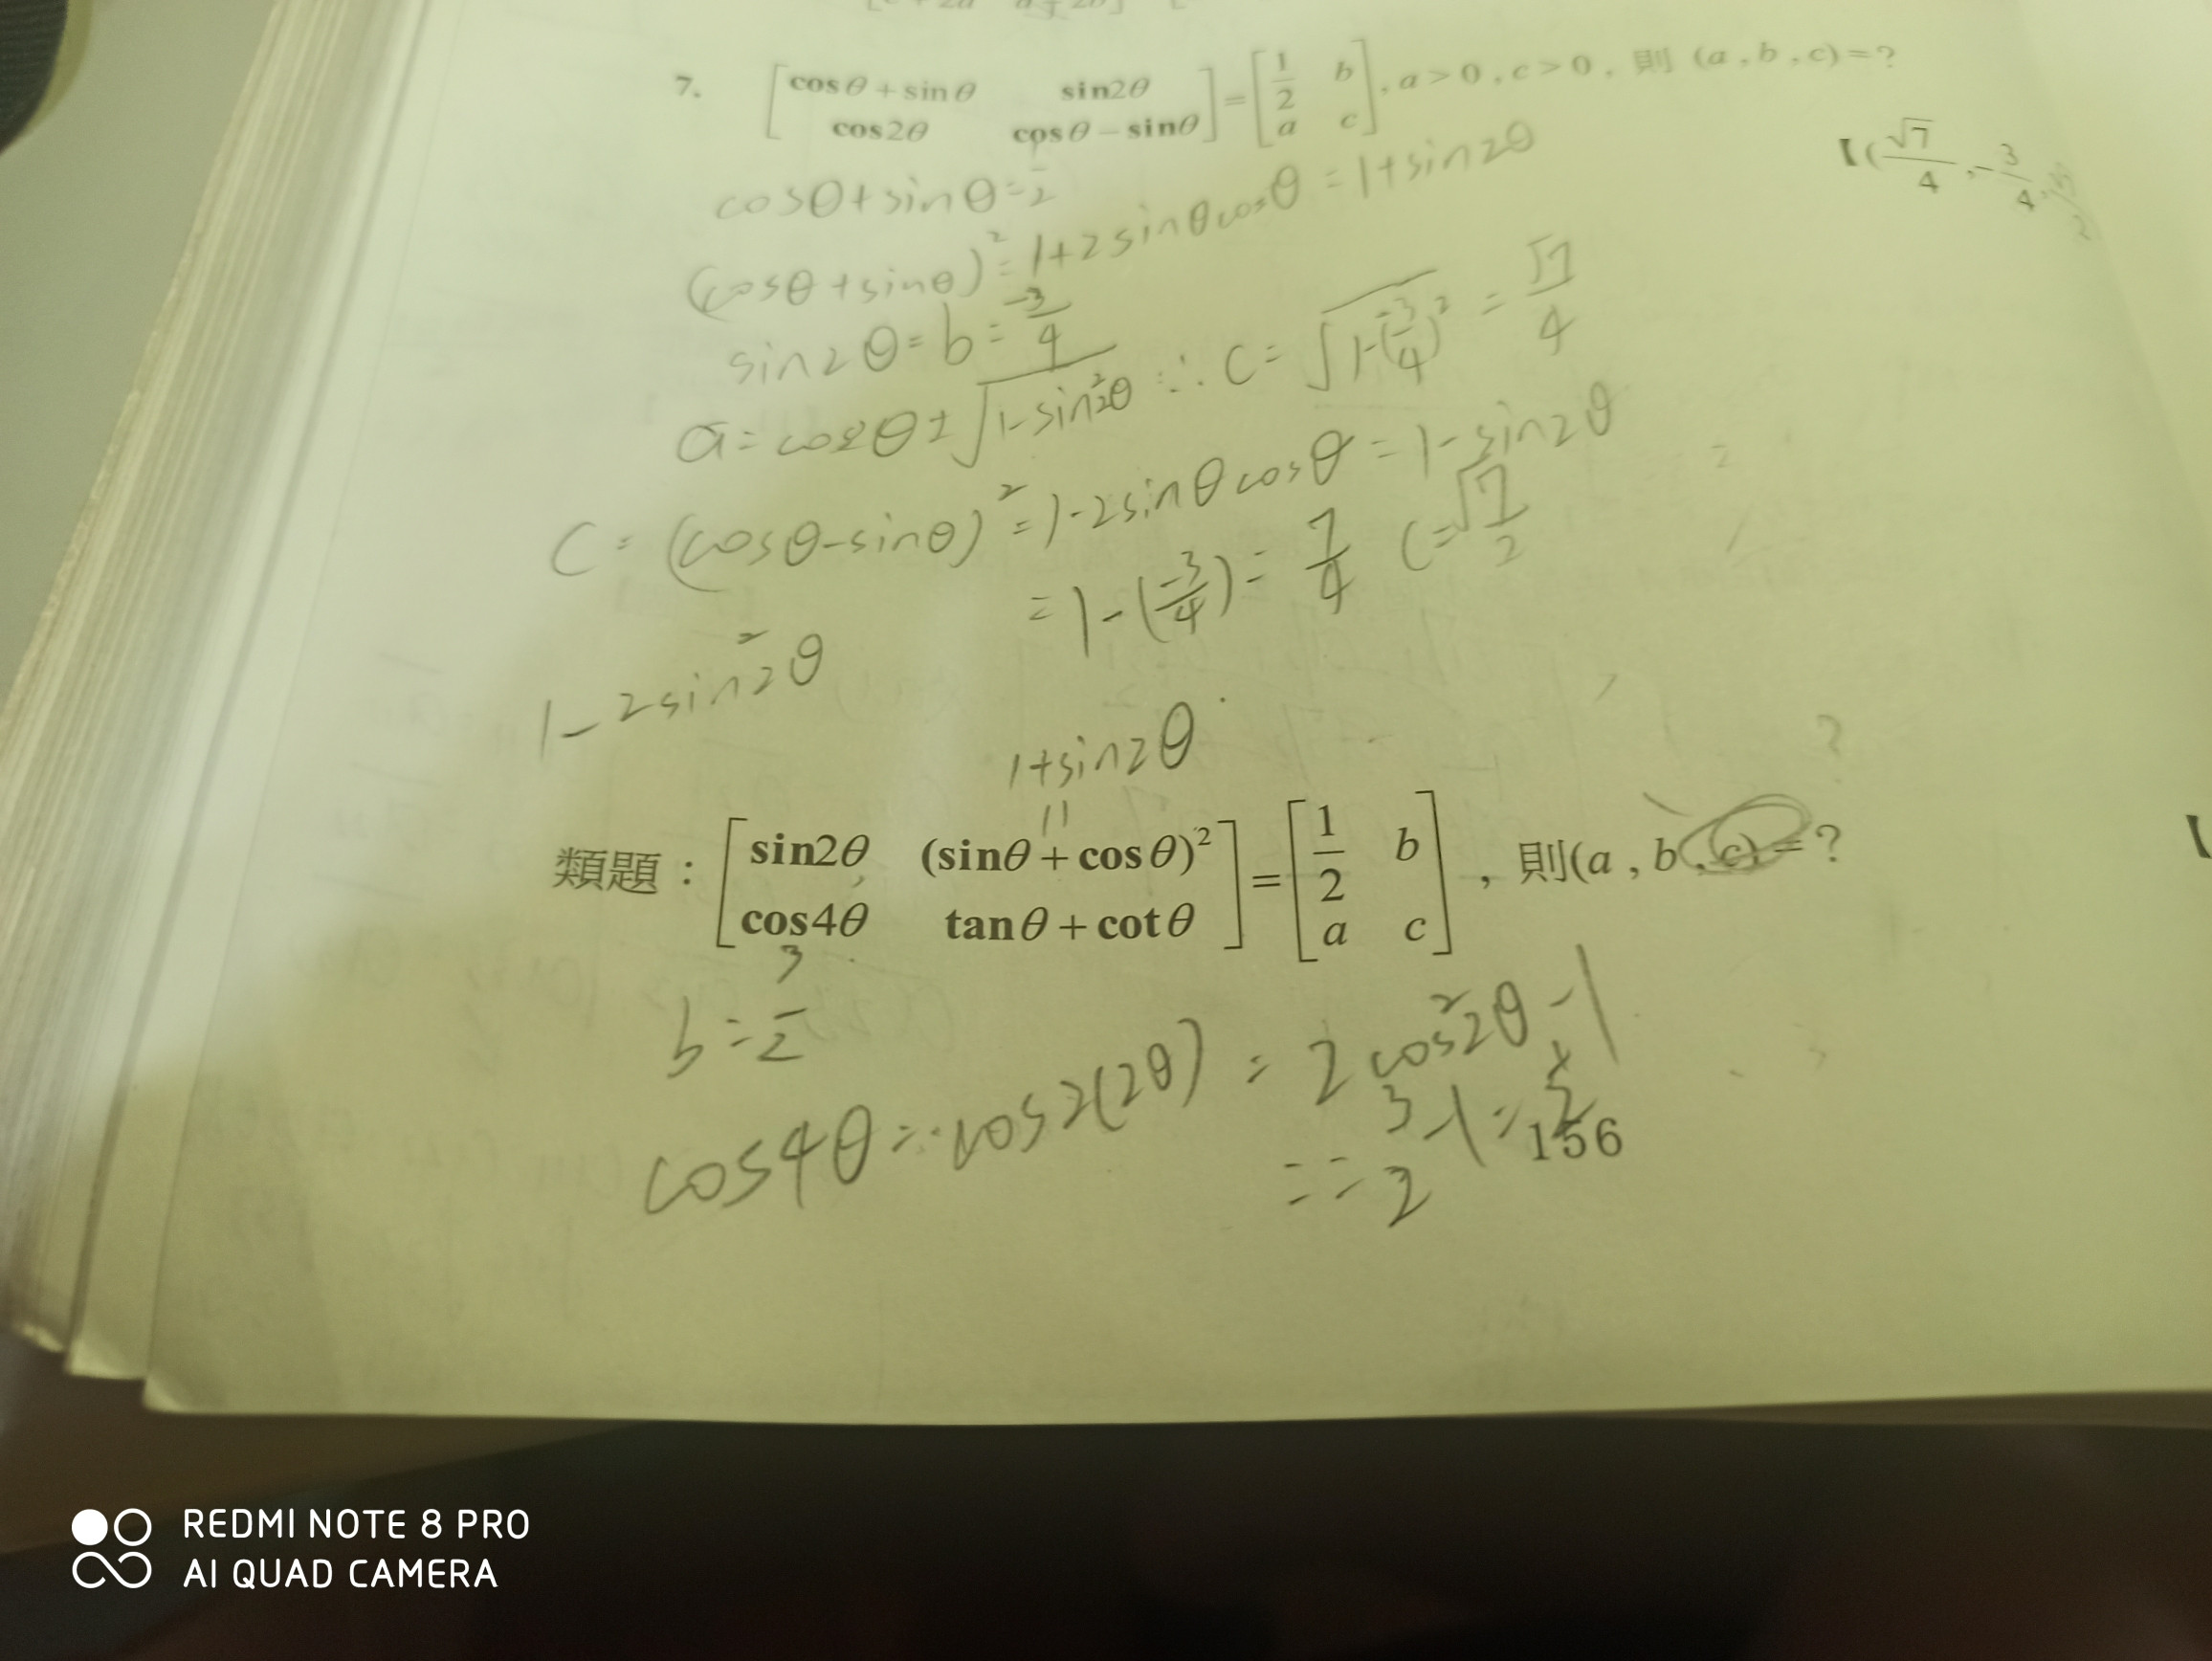 7. [cosθ+sinθ sin2θ cos2θ cosθ-sinθ] = [1/2 b a c], a>0, c>0, 則 (a, b, c)=?
【(√7/4, -3/4,
cosθ+sinθ=1/2
(cosθ+sinθ)²=1+2sinθcosθ=1+sin2θ
sin2θ=b=-3/4
a=cos2θ±√1-sin²2θ ∴c=√1-(-3/4)²=√7/4
C=(cosθ-sinθ)²=1-2sinθcosθ=1-sin2θ
=1-(-3/4)=7/4 C=√7/2
1-2sin²2θ
1+sin2θ
11
類題：[sin2θ (sinθ+cosθ)² cos4θ tanθ+cotθ] = [1/2 b a c], 則(a, b, c)=?
【
b=3/2
cos4θ=cos2(2θ)=2cos²2θ-1
=3/2-1=
156
REDMI NOTE 8 PRO
AI QUAD CAMERA